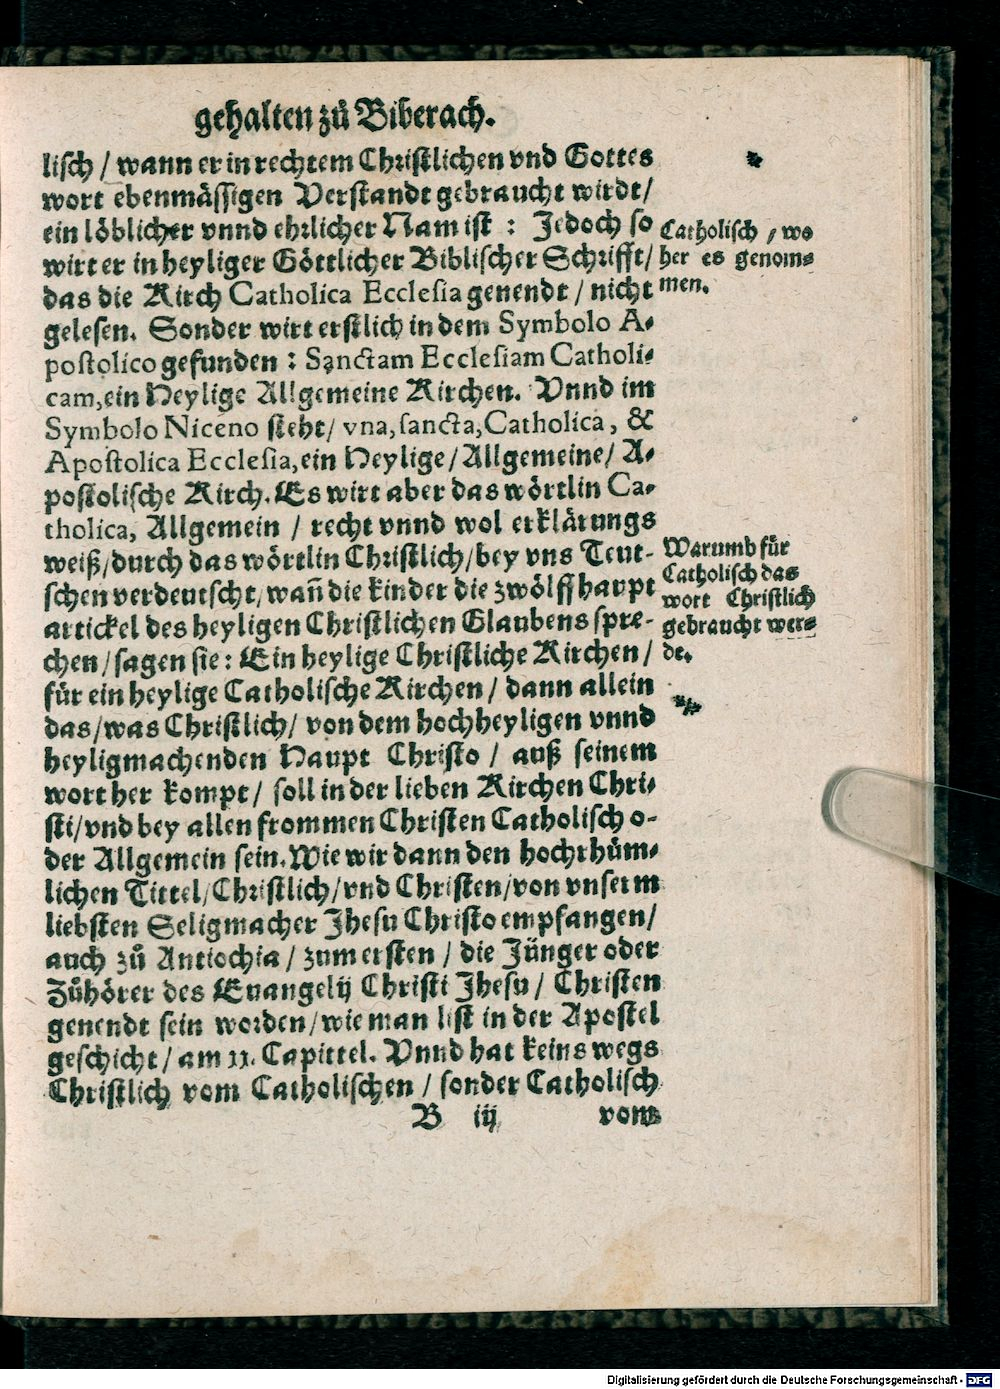 gehalten zů Biberach.
lisch / wann er in rechtem Christlichen vnd Gottes
wort ebenmässigen Verstandt gebraucht wirdt /
ein löblicher vnnd ehrlicher Nam ist : Jedoch so
wirt er in heyliger Göttlicher Biblischer Schrifft /
das die Kirch Catholica Ecclesia genendt / nicht
gelesen. Sonder wirt erstlich in dem Symbolo A⸗
postolico gefunden : Sanctam Ecclesiam Catholi⸗
cam, ein Heylige Allgemeine Kirchen. Vnnd im
Symbolo Niceno steht / vna, sancta, Catholica, &
Apostolica Ecclesia, ein Heylige / Allgemeine / A⸗
postolische Kirch. Es wirt aber das wörtlin Ca⸗
tholica, Allgemein / recht vnnd wol erklärungs
weiß / durch das wörtlin Christlich / bey vns Teut-
schen verdeutscht / wañ die kinder die zwölff haupt
artickel des heyligen Christlichen Glaubens spre-
chen / sagen sie : Ein heylige Christliche Kirchen /
für ein heylige Catholische Kirchen / dann allein
das / was Christlich / von dem hochheyligen vnnd
heyligmachenden Haupt Christo / auß seinem
wort her kompt / soll in der lieben Kirchen Chri⸗
sti / vnd bey allen frommen Christen Catholisch o-
der Allgemein sein. Wie wir dann den hochrhům⸗
lichen Tittel / Christlich / vnd Christen / von vnserm
liebsten Seligmacher Jhesu Christo empfangen /
auch zů Antiochia / zum ersten / die Jünger oder
Zůhörer des Euangelij Christi Jhesu / Christen
genendt sein worden / wie man list in der Apostel
geschicht / am 11. Capittel. Vnnd hat keins wegs
Christlich vom Catholischen / sonder Catholisch
B iij vom
*
Catholisch / wo
her es genom⸗
men.
Warumb für
Catholisch das
wort Christlich
gebraucht wer⸗
de.
**
Digitalisierung gefördert durch die Deutsche Forschungsgemeinschaft - DFG